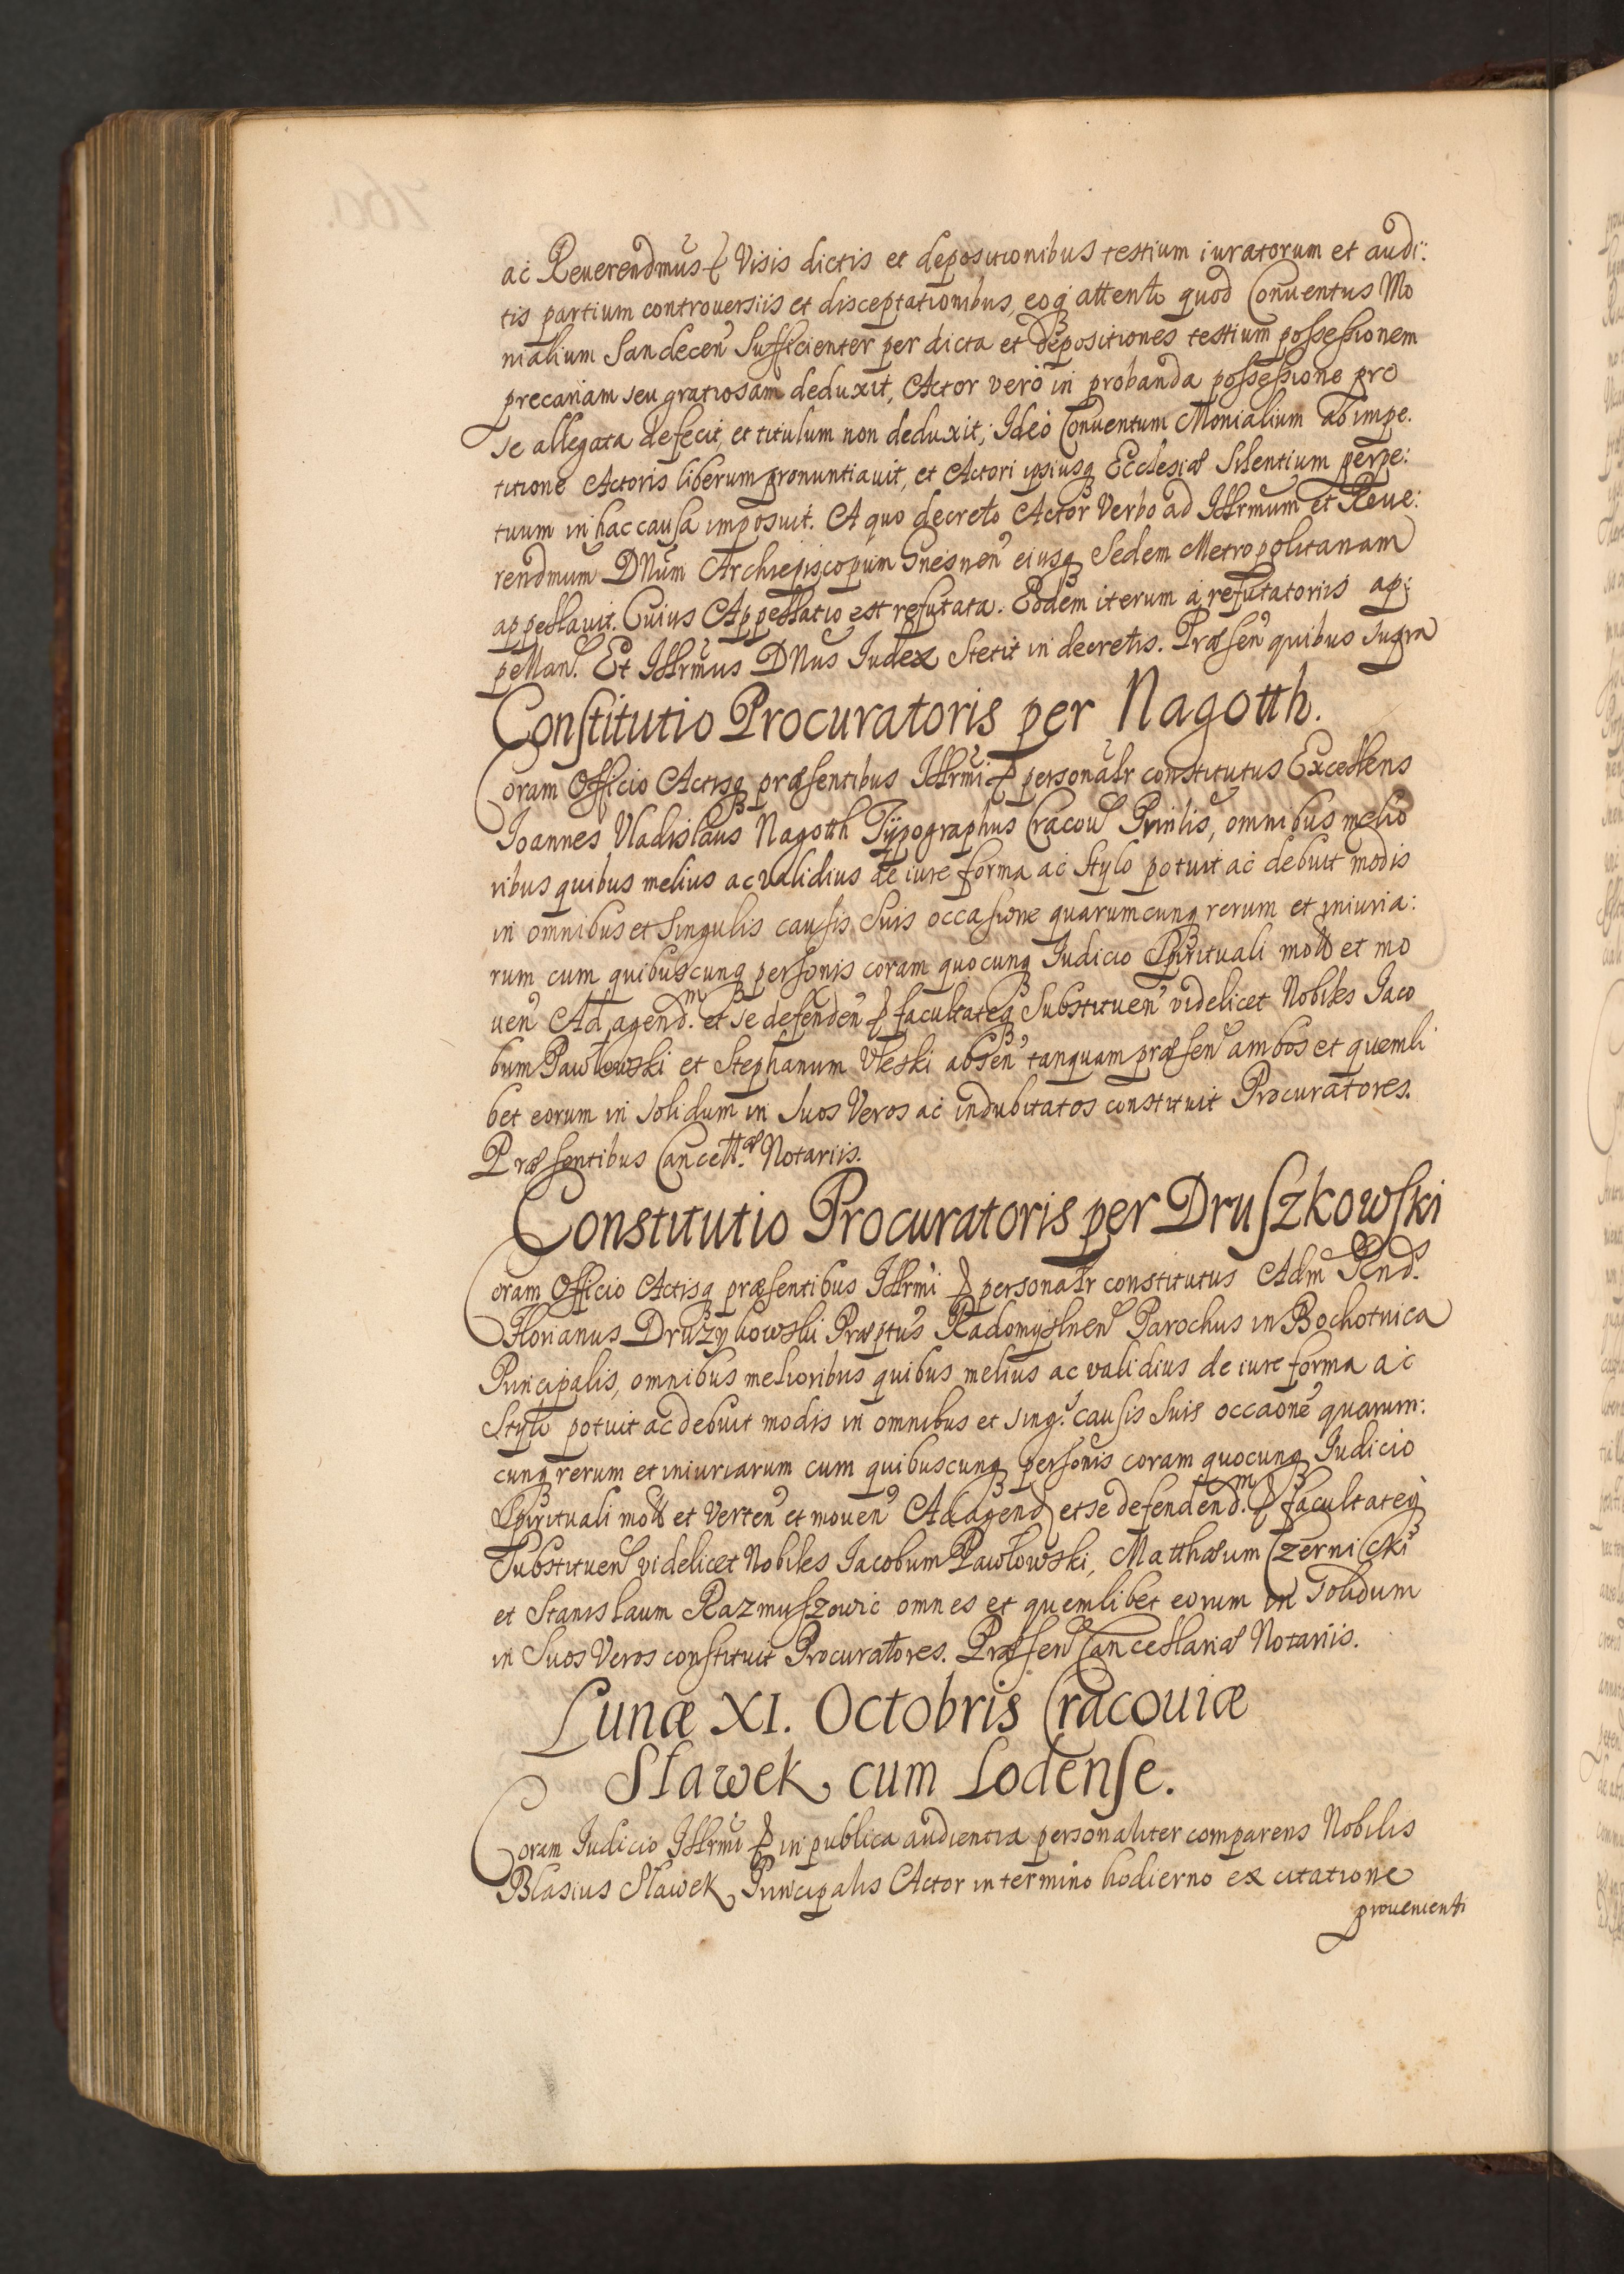 ac Reuerendmus & Visis dictis et depositionibus testium iuratorum et audi:
tis partium controuersiis et disceptationibus, eoq attento quod Conuentus Mo
nialium Sandecen Sufficienter per dicta et depositiones testium possessionem
precariam seu gratiosam deduxit, Actor vero in probanda possessione pro
se allegata defecit, et titulum non deduxit; Ideo Conuentum Monialium ab impe.
titione Actoris liberum pronuntiauit, et Actori ipsiusq Ecclesiæ Silentium perpe:
tuum in hac causa imposuit. A quo decreto Actor Verbo ad Illrmum et Reue:
rendmum DNum Archiepiscopum Gnesnen eiusq Sedem Metropolitanam
appellauit. Cuius Appellatio est refutata. Eodem iterum à refutatoriis ap:
pellan. Et Illrmus DNus Iudex Stetit in decretis. Præsen quibus supra
Constitutio Procuratoris per Nagotth.
Coram Officio Actisq præsentibus Illrmi & personalr constitutus Excellens
Ioannes Vladislaus Nagotth Typographus Cracou Prinlis, omnibus melio
ribus quibus melius ac validius de iure forma ac Stylo potuit ac debuit modis
in omnibus et Singulis causis Suis occasione quarumcunq rerum et iniuria:
rum cum quibuscunq personis coram quocunq Iudicio Spirituali motis et mo
uen Ad agend. et se defenden & facultateq Substituen videlicet Nobiles Iaco
bum Pawłowski et Stephanum Vleski absen tanquam præsen ambos et quemli
bet eorum in solidum in Suos Veros ac indubitatos constituit Procuratores.
Præsentibus Cancell.æ Notariis.
Constitutio Procuratoris per Druszkowski
Coram Officio Actisq præsentibus Illrmi & personalr constitutus Adm Rnd.
Florianus Druzykowski Præptus Radomyslnen Parochus in Bochotnica
Principalis, omnibus melioribus quibus melius ac validius de iure forma ac
Stylo potuit ac debuit modis in omnibus et sing. causis Suis occaone quarum:
cunq rerum et iniuriarum cum quibuscunq personis coram quocunq Iudicio
Spirituali motis et Verten et mouen Ad agend et se defendend. & facultateq
Substituen videlicet Nobiles Iacobum Pawłowski, Matthæum Czernicki
et Stanislaum Razmuszowic omnes et quemlibet eorum in Solidum
in Suos Veros constituit Procuratores. Præsen Cancellariæ Notariis.
Lunæ XI. Octobris Cracouiæ
Sławek cum Lodense.
Coram Iudicio Illrmi & in publica audientia personaliter comparens Nobilis
Blasius Sławek Principalis Actor in termino hodierno ex citatione
prouenienti